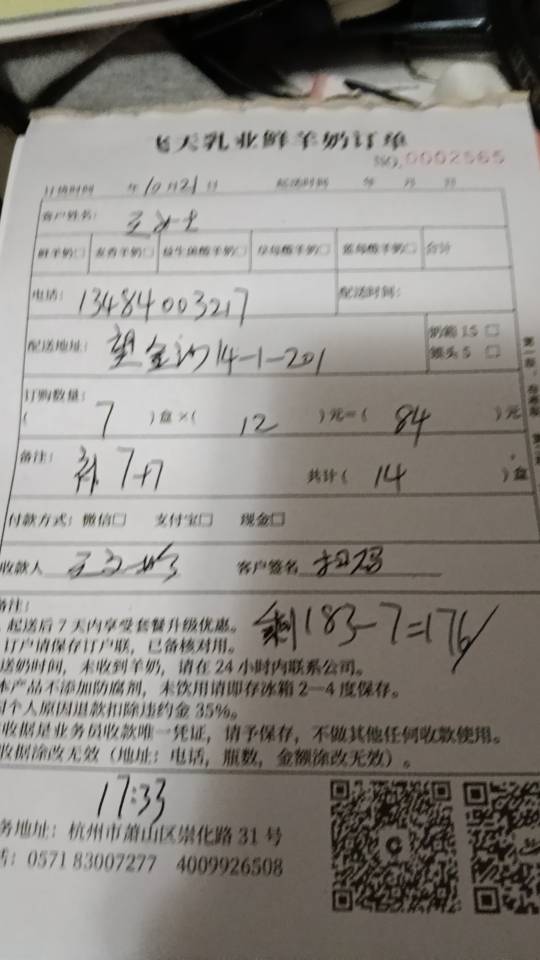 飞天乳业鲜羊奶订单
NO.0002565
订货时间 年10月21日 起送时间 年 月 日
客户姓名: 王女士
鲜羊奶□ 麦香羊奶□ 益生菌酸羊奶□ 草莓酸羊奶□ 蓝莓酸羊奶□ 合计
电话: 13484003217 配送时间:
配送地址: 望金沙14-1-201 奶箱 15 □
罐头 5 □
订购数量:
( 7 )盒×( 12 )元=( 84 )元
备注: 补 7+7 共计( 14 )盒
付款方式: 微信□ 支付宝□ 现金□
收款人 客户签名 扫码
备注:
起送后 7 天内享受套餐升级优惠。 剩183-7=176
订户请保存订户联,已备核对用。
送奶时间,未收到羊奶,请在 24 小时内联系公司。
本产品不添加防腐剂,未饮用请即存冰箱 2—4 度保存。
个人原因退款扣除违约金 35%。
收据是业务员收款唯一凭证,请予保存,不做其他任何收款使用。
收据涂改无效(地址:电话,瓶数,金额涂改无效)。
17:33
务地址:杭州市萧山区崇化路 31 号
话: 0571 83007277 4009926508